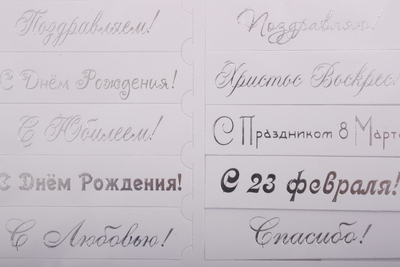 Поздравляем!
С Днём Рождения!
С Юбилеем!
С Днём Рождения!
С Любовью!
Поздравляю!
Христос Воскрес!
С Праздником 8 Марта
С 23 февраля!
Спасибо!